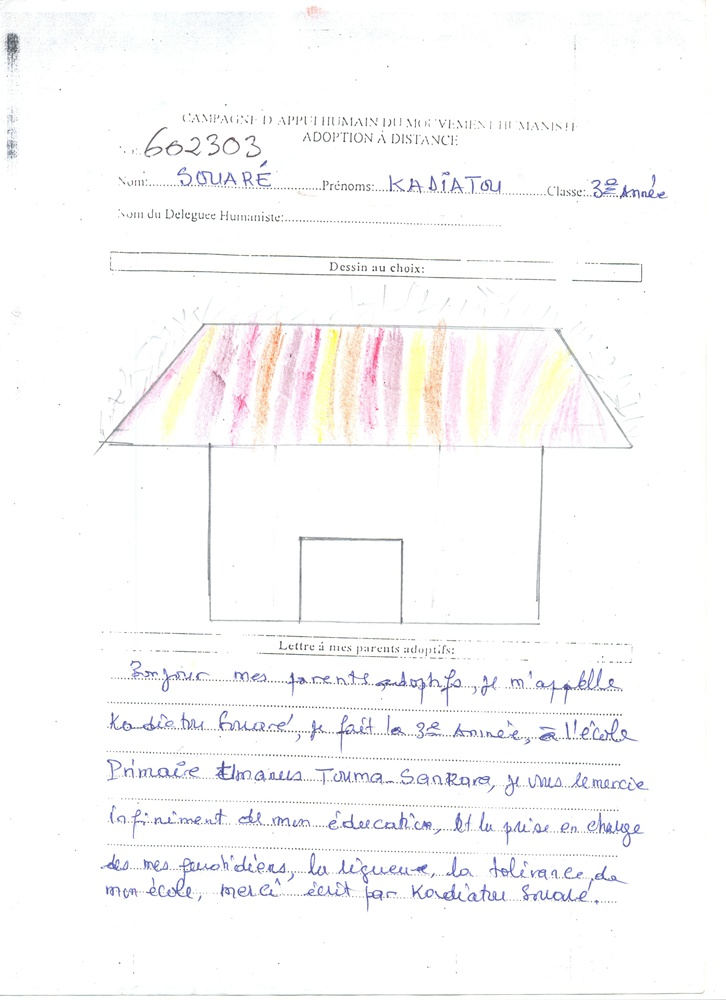 CAMPAGNE D'APPUI HUMAIN DU MOUVEMENT HUMANISTE
ADOPTION À DISTANCE
602303
Nom: SOUARÉ Prénoms: KADIATOU Classe: 3e Année
Nom du Deleguee Humaniste:
Dessin au choix:
Lettre à mes parents adoptifs:
Bonjour mes parents adoptifs, je m'appelle
Kadiatou Souaré, je fait la 3e Année, à l'école
Primaire Touma-Sankara, je vous remercie
infiniment de mon éducation, et la prise en charge
des mes la rigueur, la tolérance, de
mon école, merci écrit par Kadiatou Souaré.